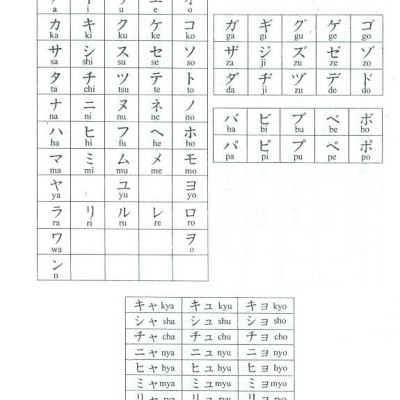 a i u e o
カ キ ク ケ コ
ka ki ku ke ko
サ シ ス セ ソ
sa shi su se so
タ チ ツ テ ト
ta chi tsu te to
ナ ニ ヌ ネ ノ
na ni nu ne no
ハ ヒ フ ヘ ホ
ha hi fu he ho
マ ミ ム メ モ
ma mi mu me mo
ヤ ユ ヨ
ya yu yo
ラ リ ル レ ロ
ra ri ru re ro
ワ ヲ
wa o
ン
n
ガ ギ グ ゲ ゴ
ga gi gu ge go
ザ ジ ズ ゼ ゾ
za ji zu ze zo
ダ ヂ ヅ デ ド
da ji zu de do
バ ビ ブ ベ ボ
ba bi bu be bo
パ ピ プ ペ ポ
pa pi pu pe po
キャ kya キュ kyu キョ kyo
シャ sha シュ shu ショ sho
チャ cha チュ chu チョ cho
ニャ nya ニュ nyu ニョ nyo
ヒャ hya ヒュ hyu ヒョ hyo
ミャ mya ミュ myu ミョ myo